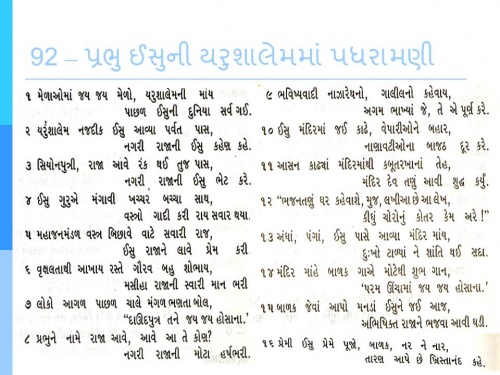 92 – પ્રભુ ઈસુની યરુશાલેમમાં પધરામણી
૧ મેળાઓમાં જય જય મેળો, યરુશાલેમની માંય
પાછળ ઈસુની દુનિયા સર્વ ગઈ.
૨ યરુંશાલેમ નજદીક ઈસુ આવ્યા પર્વત પાસ,
નગરી રાજાની ઈસુ કહેણ કહે.
૩ સિયોનપુત્રી, રાજા આવે રંક થઈ તુજ પાસ,
નગરી રાજાની ઈસુ ભેટ કરે.
૪ ઈસુ ગુરુએ મંગાવી ખચ્ચર બચ્ચા સાથ,
વસ્ત્રો ગાદી કરી રાય સવાર થયા.
૫ મહાજનમંડળ વસ્ત્ર બિછાવે વાટે સવારી રાજ,
ઈસુ રાજાને લાવે પ્રેમ કરી
૬ વૃક્ષલતાથી આખાય રસ્તે ગૌરવ બહુ શોભાય,
મસીહા રાજાની સ્વારી માન ભરી
૭ લોકો આગળ પાછળ ચાલે મંગળ ભણતા બોલ,
'દાઊદપુત્ર તને જય જય હોસાના.'
૮ પ્રભુને નામે રાજા આવે, આવે આ તે કોણ?
નગરી રાજાની મોટા હર્ષભરી.
૯ ભવિષ્યવાદી નાઝારેથનો, ગાલીલનો કહેવાય,
અગમ ભાખ્યાં જે, તે એ પૂર્ણ કરે.
૧૦ ઈસુ મંદિરમાં જઈ કાઢે, વેપારીઓને બહાર,
નાણાવટીઓના બાજઠ દૂર કરે.
૧૧ આસન કાઢ્યાં મંદિરમાંથી કબૂતરખાનાં તેહ,
મંદિર દેવ તણું આવી શુદ્ધ કર્યું.
૧૨ "ભજનતણું ઘર કહેવાશે, મુજ, લખીઆ છે આ લેખ,
કીધું ચોરોનું કોતર કેમ અરે !"
૧૩ અંધાં, પંગાં, ઈસુ પાસે આવ્યા મંદિર માંય,
દુઃખો ટાળ્યાં ને શાંતિ થઈ સદા.
૧૪ મંદિર માંહે બાળક ગાએ મોટેથી શુભ ગાન,
'પરમ ઊંચામાં જય જય હોસાના.'
૧૫ બાળક જેવાં આપો મનડાં ઈસુને જઈ આજ,
અભિષિક્ત રાજાને ભજવા આવી ઘડી.
૧૬ પ્રેમી ઈસુ પ્રેમે પૂજો, બાળક, નર ને નાર,
તારણ આપે છે ખ્રિસ્તાનંદ કહે.